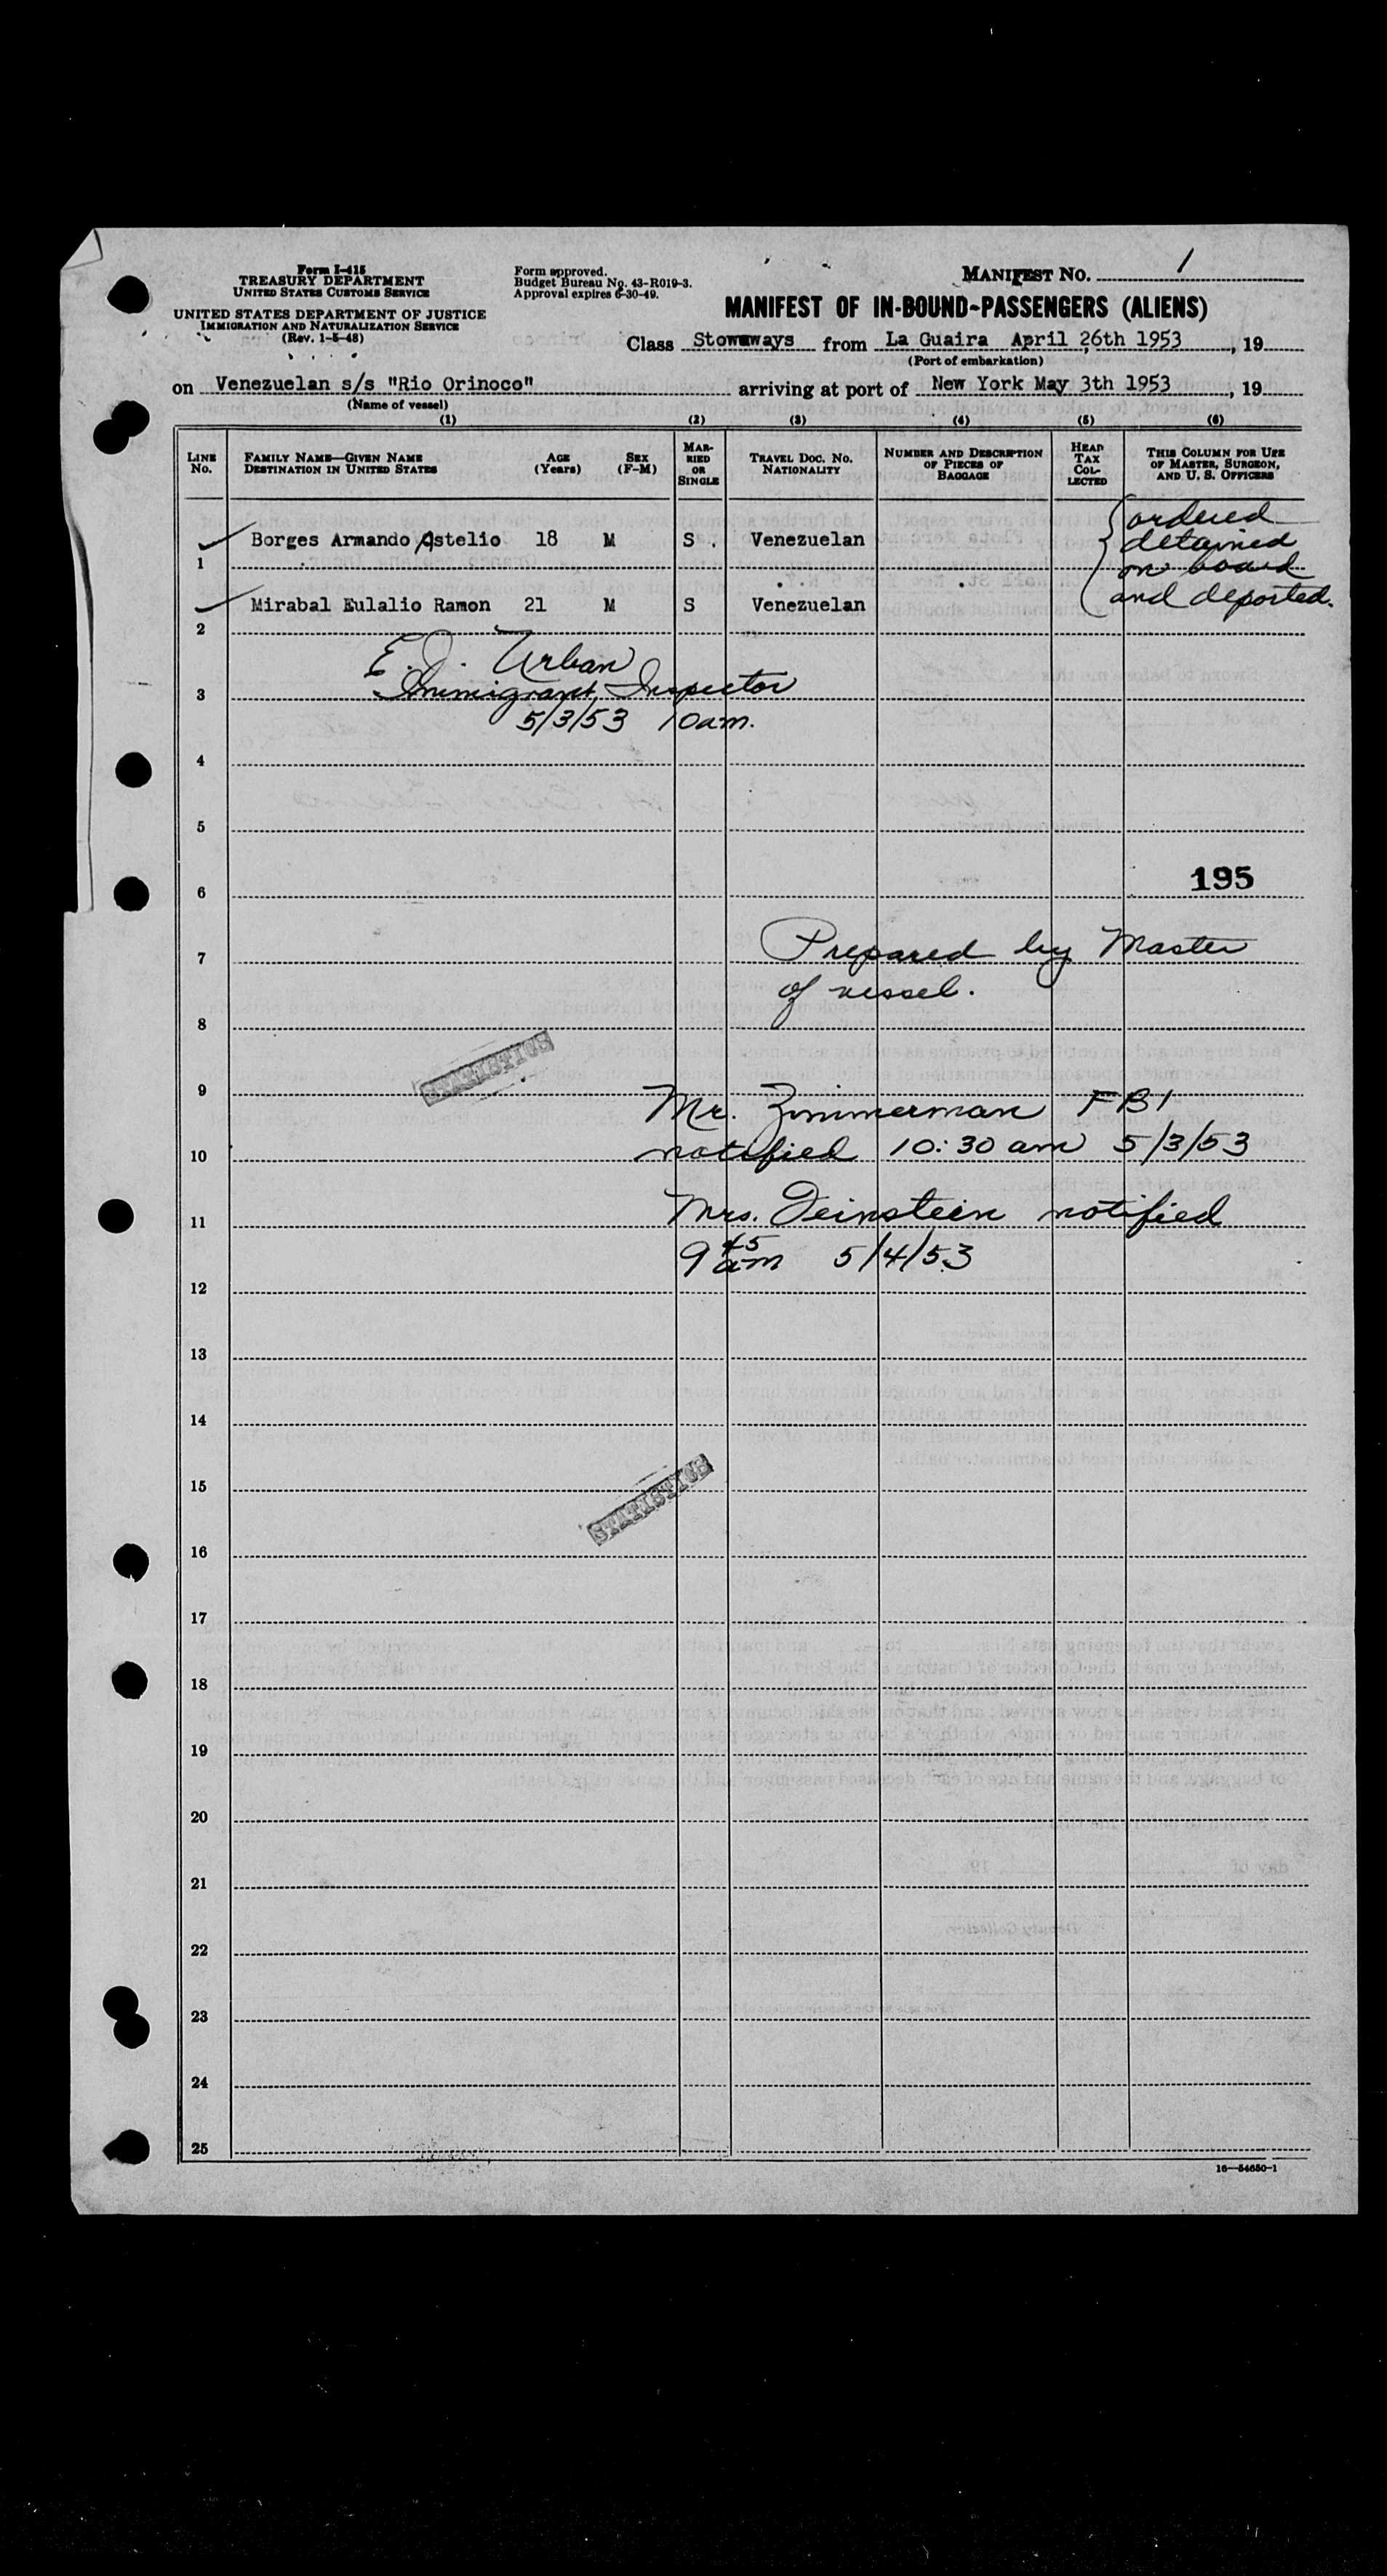 Form I-415
TREASURY DEPARTMENT
UNITED STATES CUSTOMS SERVICE
UNITED STATES DEPARTMENT OF JUSTICE
IMMIGRATION AND NATURALIZATION SERVICE
(Rev. 1-5-48)
Form approved.
Budget Bureau No. 43-R019-3.
Approval expires 6-30-49.
MANIFEST NO. 1
MANIFEST OF IN-BOUND-PASSENGERS (ALIENS)
Class Stowaways from La Guaira April 26th 1953, 19
(Port of embarkation)
on Venezuelan s/s "Rio Orinoco" arriving at port of New York May 3th 1953, 19
(Name of vessel)
(1) (2) (3) (4) (5) (6)
LINE No.
FAMILY NAME—GIVEN NAME
DESTINATION IN UNITED STATES
AGE (Years)
SEX (F-M)
MARRIED OR SINGLE
TRAVEL DOC. NO. NATIONALITY
NUMBER AND DESCRIPTION OF PIECES OF BAGGAGE
HEAD TAX COLLECTED
THIS COLUMN FOR USE OF MASTER, SURGEON, AND U. S. OFFICERS
1 Borges Armando Astelio 18 M S. Venezuelan
2 Mirabal Eulalio Ramon 21 M S Venezuelan
ordered
detained
on board
and deported.
E. J. Urban
Immigrant Inspector
3
5/3/53 10am.
4
5
195
6
Prepared by Master
7
of vessel.
8
STATISTICS
9
Mr. Zimmerman FBI
10
notified 10:30 am 5/3/53
Mrs. notified
11
9 45 am 5/4/53
12
13
14
STATISTICS
15
16
17
18
19
20
21
22
23
24
25
16—54650-1